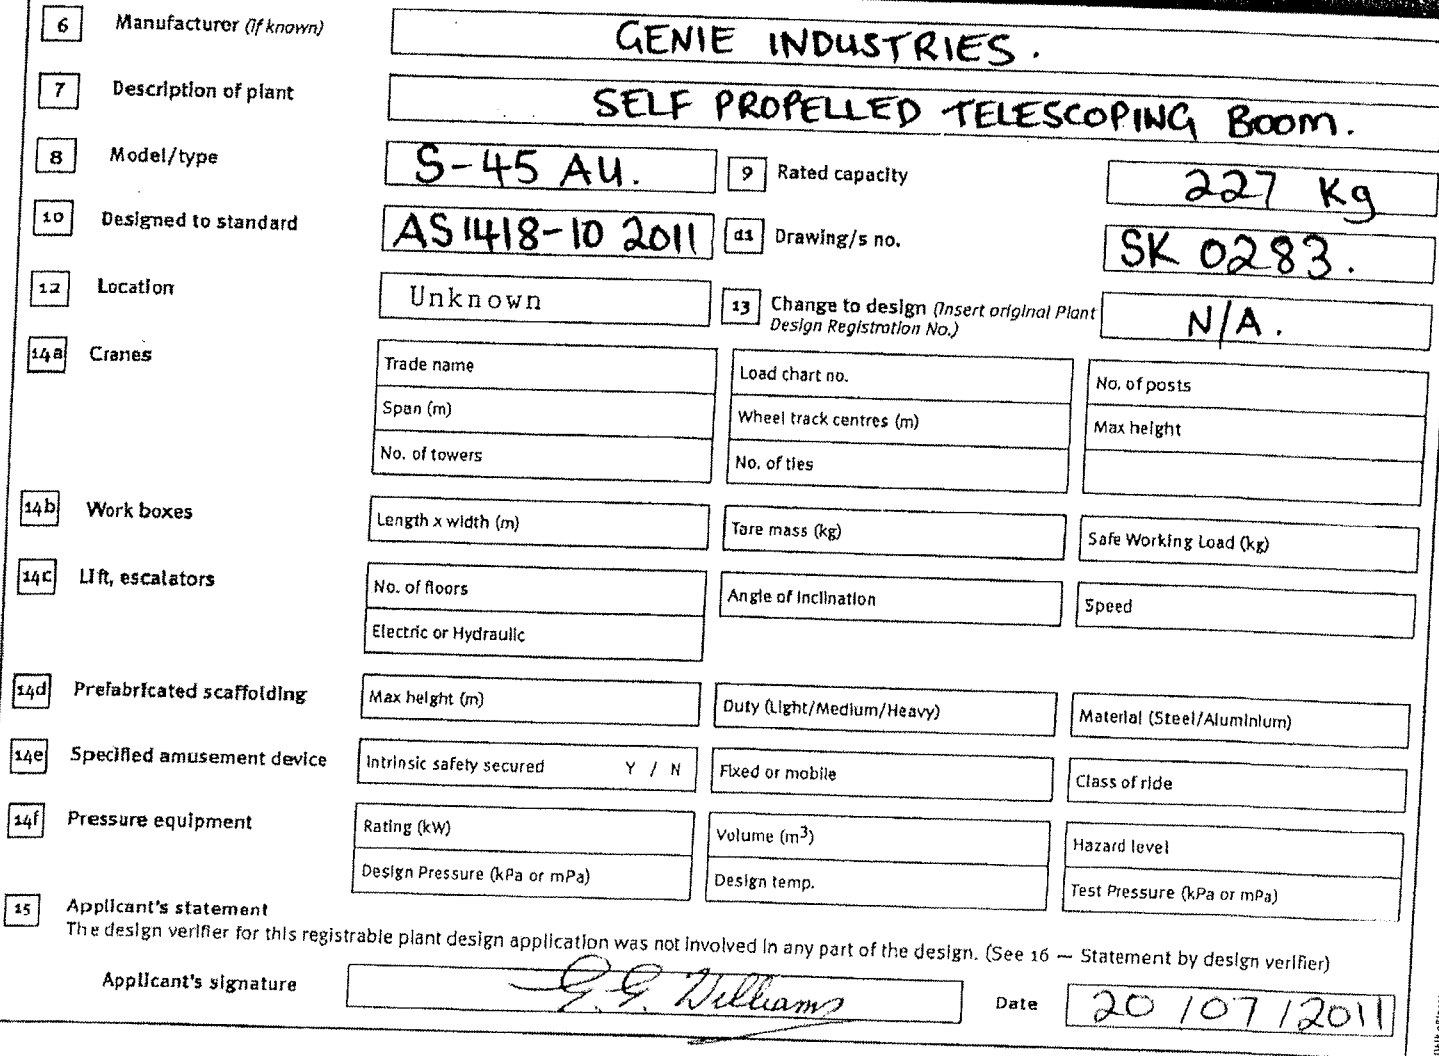 6 Manufacturer (if known) GENIE INDUSTRIES.
7 Description of plant SELF PROPELLED TELESCOPING BOOM.
8 Model/type S-45 AU. 9 Rated capacity 227 Kg
10 Designed to standard AS1418-10 2011 d1 Drawing/s no. SK 0283.
12 Location Unknown 13 Change to design (Insert original Plant N/A.
Design Registration No.)
14a Cranes Trade name Load chart no. No. of posts
Span (m) Wheel track centres (m) Max height
No. of towers No. of ties
14b Work boxes Length x width (m) Tare mass (kg) Safe Working Load (kg)
14c Lift, escalators No. of floors Angle of Inclination Speed
Electric or Hydraulic
14d Prefabricated scaffolding Max height (m) Duty (Light/Medium/Heavy) Material (Steel/Aluminium)
14e Specified amusement device Intrinsic safety secured Y / N Fixed or mobile Class of ride
14f Pressure equipment Rating (kW) Volume (m³) Hazard level
Design Pressure (kPa or mPa) Design temp. Test Pressure (kPa or mPa)
15 Applicant's statement
The design verifier for this registrable plant design application was not involved in any part of the design. (See 16 — Statement by design verifier)
Applicant's signature G.G. Williams Date 20/07/2011